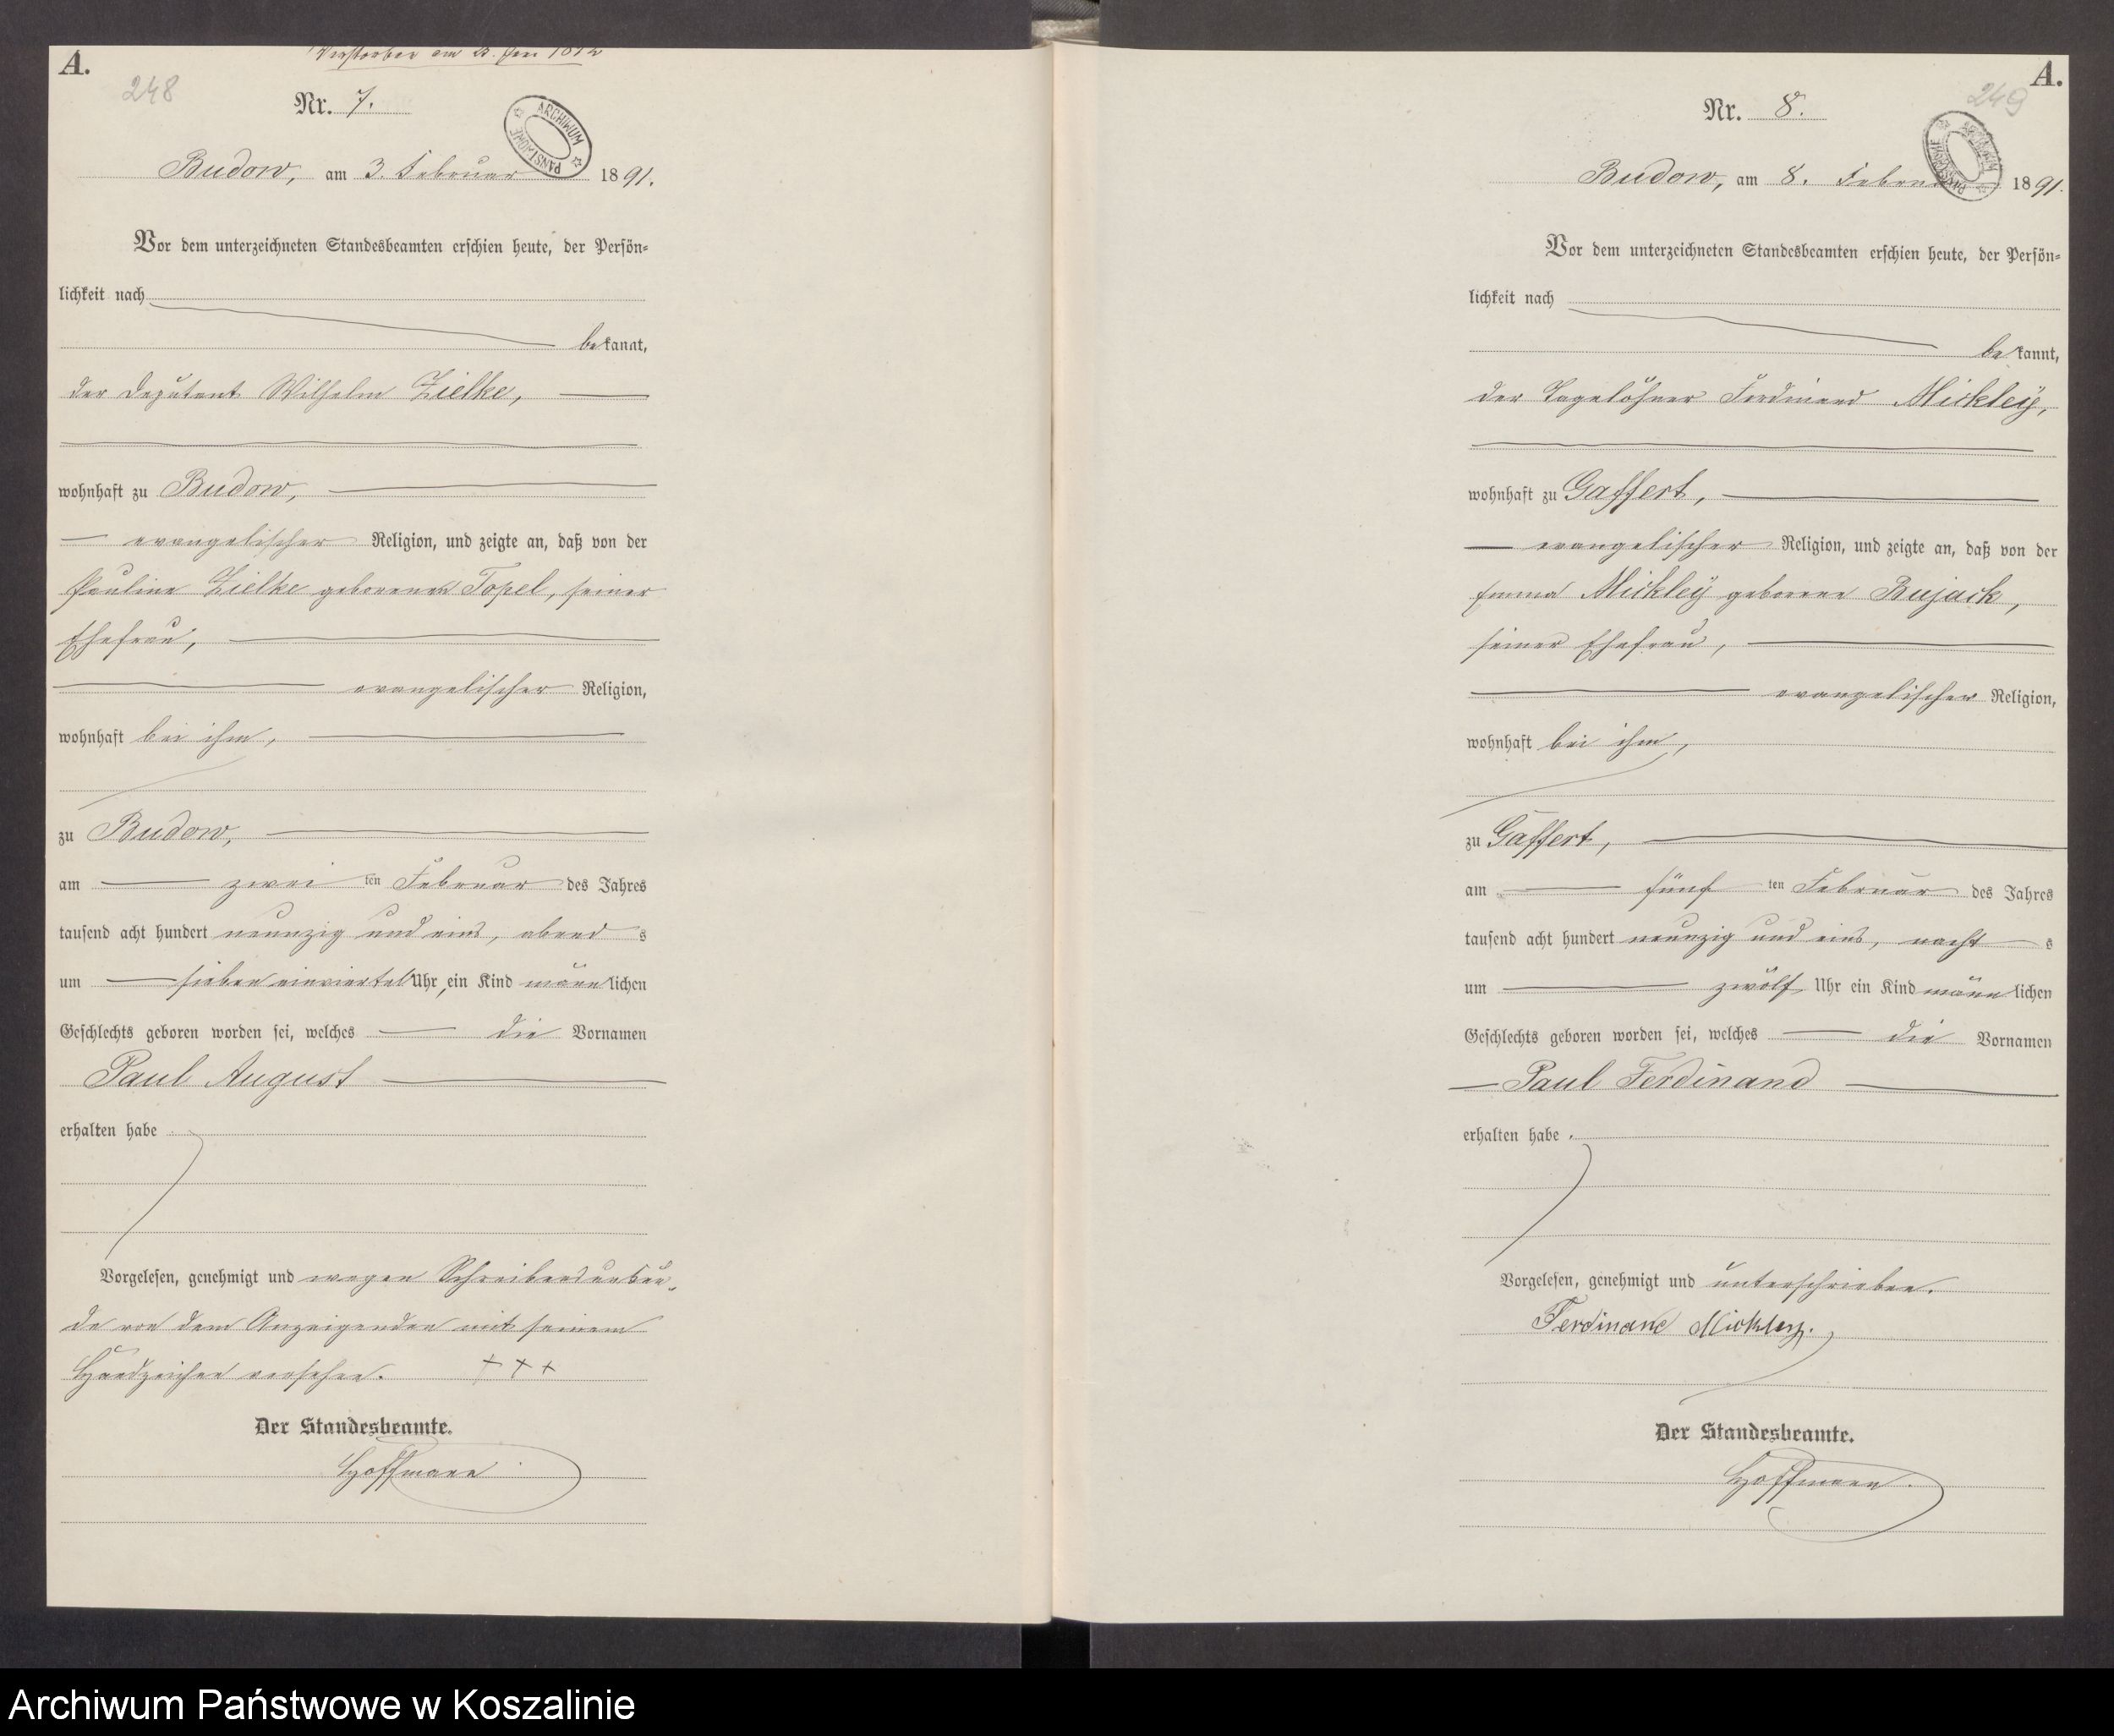 A.
Verstorben am
248
Nr. 7.
ARCHIWUM PAŃSTWOWE
Budow, am 3. Februar 1891.
Vor dem unterzeichneten Standesbeamten erschien heute, der Persön=
lichkeit nach
bekannt,
der Deputant Wilhelm Zielke,
wohnhaft zu Budow,
evangelischer Religion, und zeigte an, daß von der
Pauline Zielke geborenen Topel, seiner
Ehefrau,
evangelischer Religion,
wohnhaft bei ihm,
zu Budow,
am zwei ten Februar des Jahres
tausend acht hundert neunzig und eins, abend s
um sieben einviertel Uhr, ein Kind männlichen
Geschlechts geboren worden sei, welches die Vornamen
Paul August
erhalten habe.
Vorgelesen, genehmigt und wegen Schreibensunkun-
de von dem Anzeigenden mit seinem
Handzeichen versehen. +++
Der Standesbeamte.
Hoffmann
A.
249
Nr. 8.
ARCHIWUM PAŃSTWOWE
Budow, am 8. Februar 1891.
Vor dem unterzeichneten Standesbeamten erschien heute, der Persön=
lichkeit nach
bekannt,
der Tagelöhner Ferdinand Mickley,
wohnhaft zu Gaffert,
evangelischer Religion, und zeigte an, daß von der
Emma Mickley geborene Bujack,
seiner Ehefrau,
evangelischer Religion,
wohnhaft bei ihm,
zu Gaffert,
am fünf ten Februar des Jahres
tausend acht hundert neunzig und eins, nacht s
um zwölf Uhr ein Kind männlichen
Geschlechts geboren worden sei, welches die Vornamen
Paul Ferdinand
erhalten habe.
Vorgelesen, genehmigt und unterschrieben.
Ferdinand Mickley.
Der Standesbeamte.
Hoffmann.
Archiwum Państwowe w Koszalinie